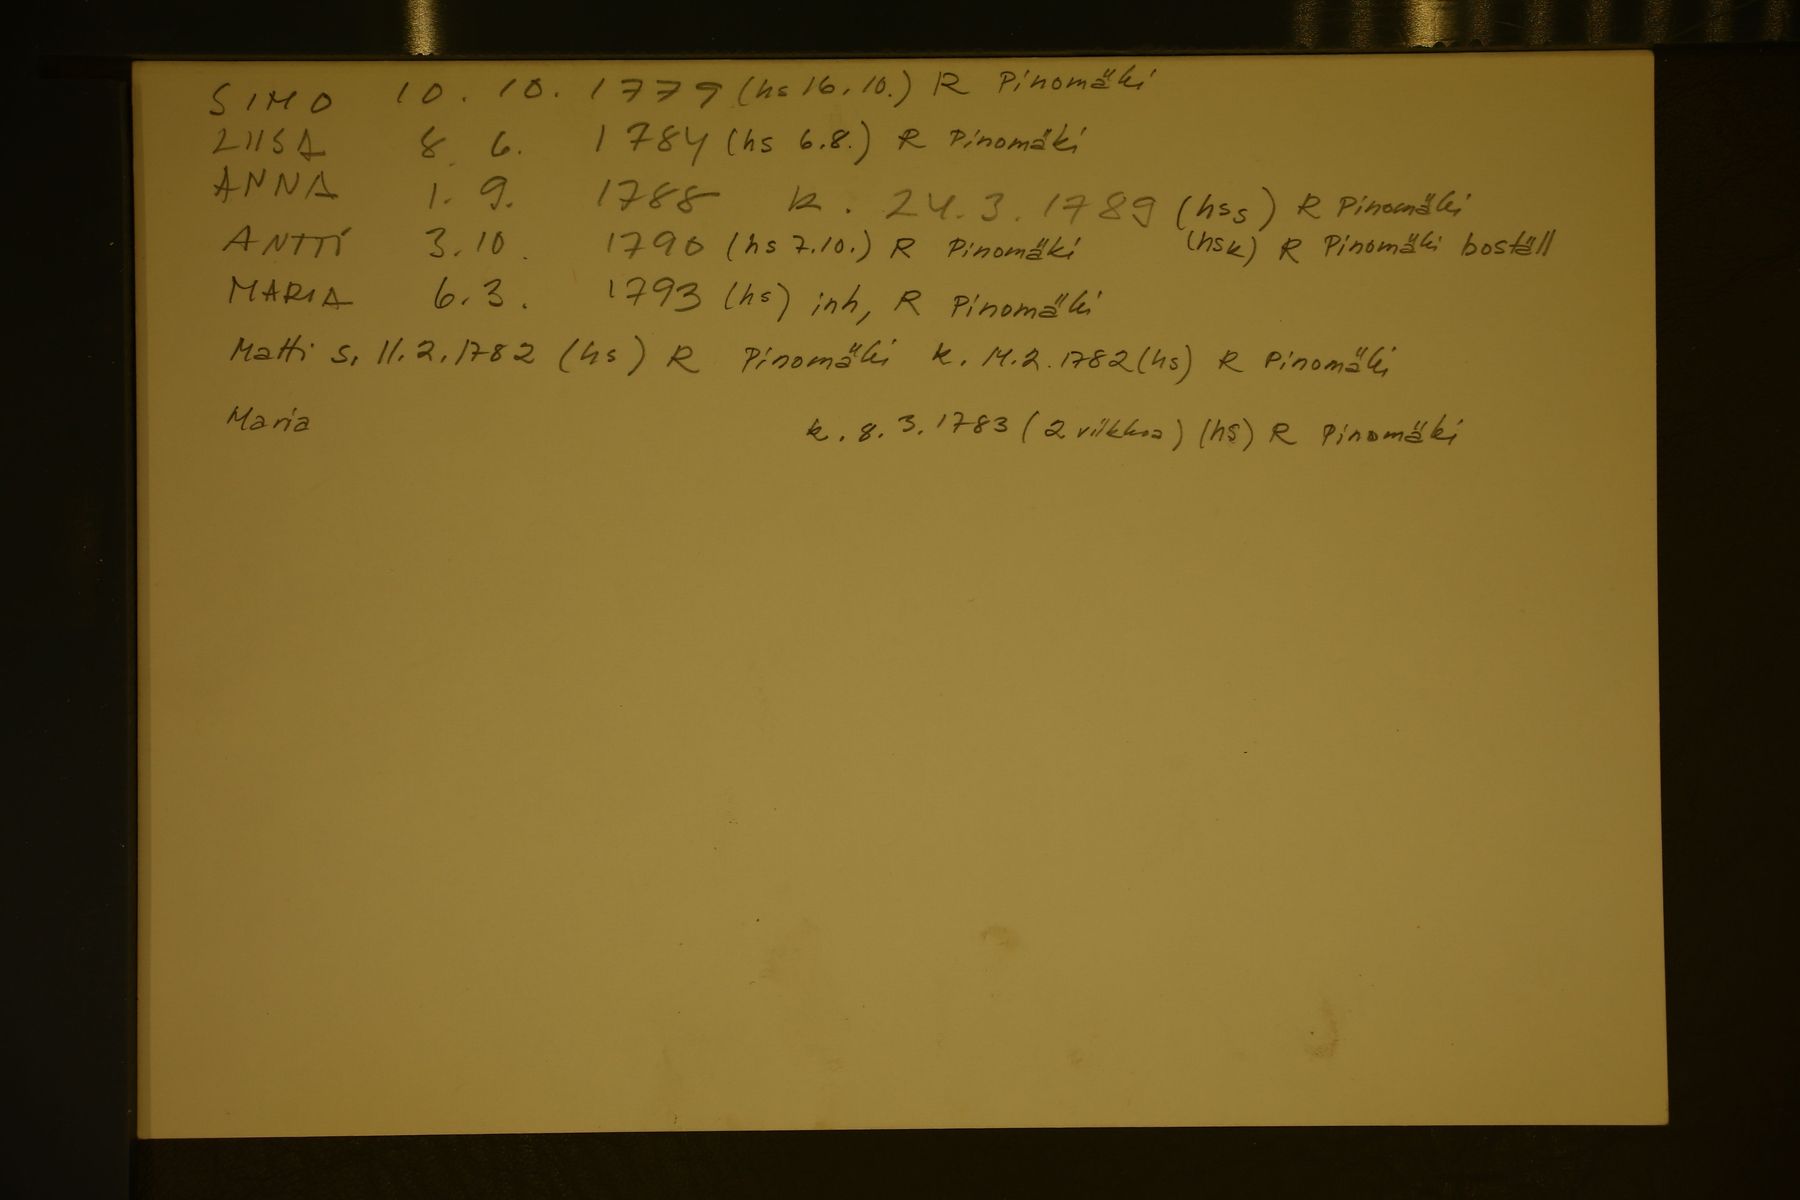 SIMO 10. 10. 1779 (hs 16.10.) R Pinomäki
LIISA 8. 6. 1784 (hs 6.8.) R Pinomäki
ANNA 1. 9. 1788 k. 24.3.1789 (hss) R Pinomäki
(hsk) R Pinomäki boställ
ANTTI 3.10. 1790 (hs 7.10.) R Pinomäki
MARIA 6.3. 1793 (hs) inh, R Pinomäki
Matti s. 11.2.1782 (hs) R Pinomäki k. 14.2.1782 (hs) R Pinomäki
Maria k. 8.3.1783 (2 viikkoa) (hs) R Pinomäki